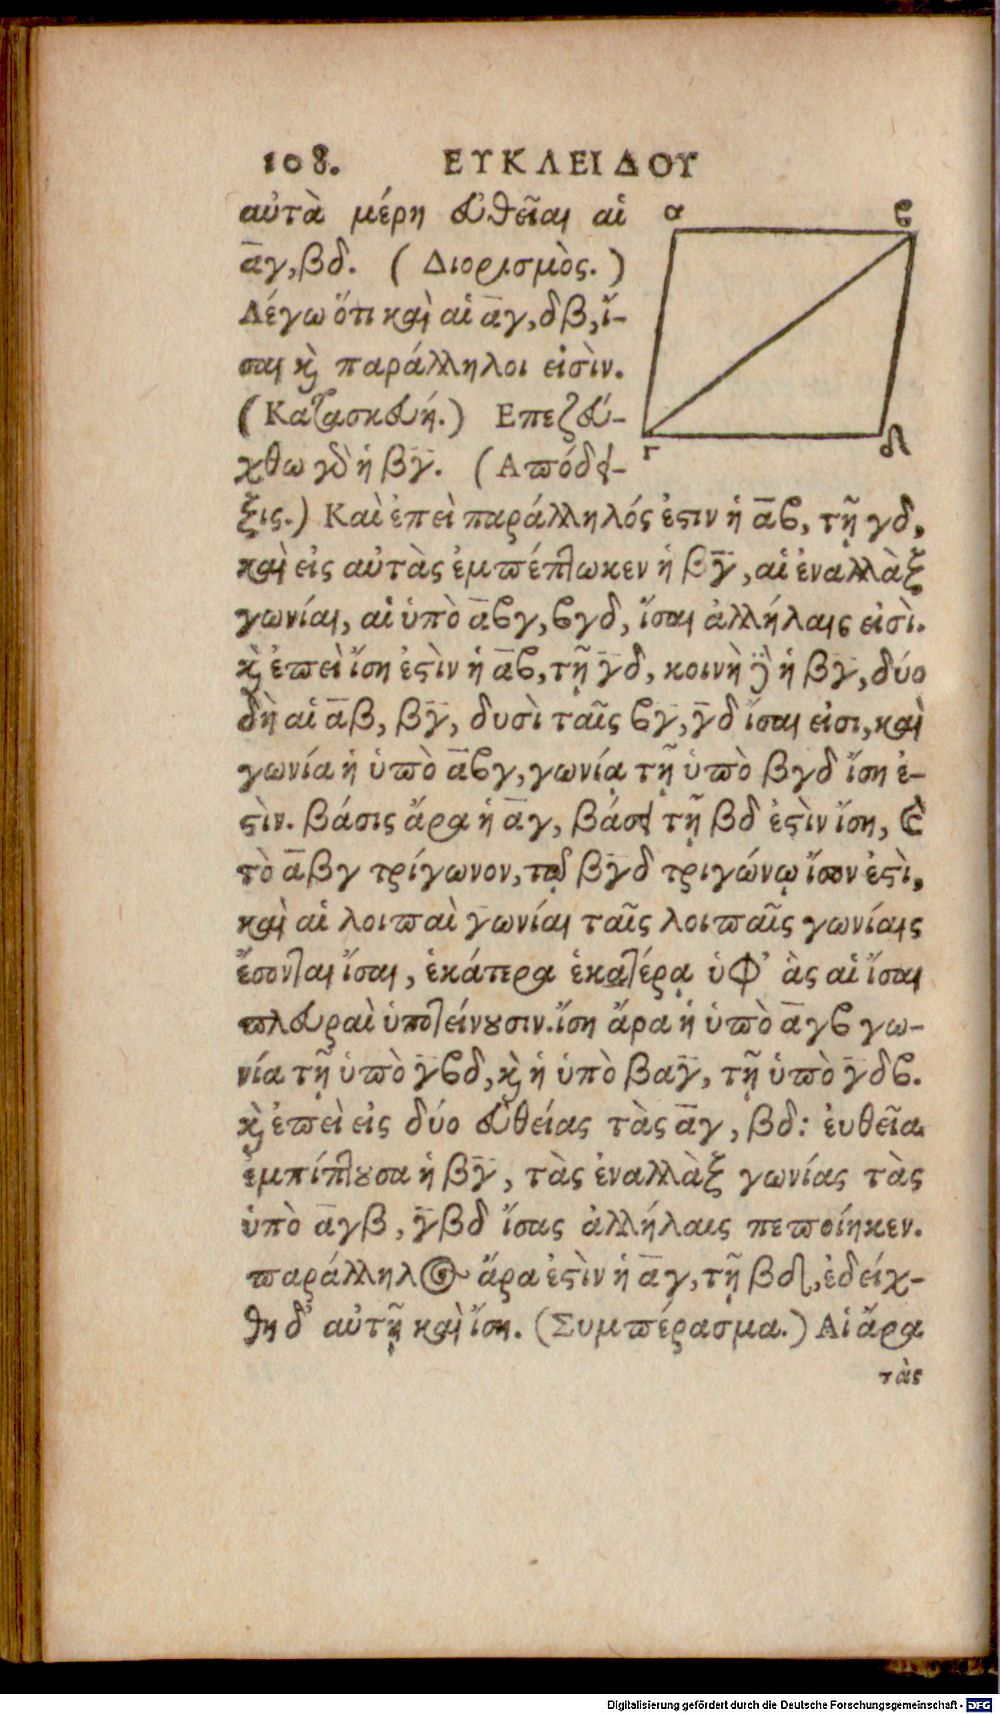 108. ΕΥΚΛΕΙΔΟΥ
αὐτὰ μέρη εὐθεῖαι αἱ
α̅γ, βδ. (Διορισμὸς.)
Λέγω ὅτι καὶ αἱ α̅γ, δβ, ἴ-
σαι καὶ παράλληλοι εἰσὶν.
(Κατασκευή.) Επεζεύ-
χθω γὸ ἡ βγ̅. (Απόδει-
ξις.) Καὶ ἐπεὶ παράλληλός ἐστιν ἡ α̅ϐ, τῇ γδ,
καὶ εἰς αὐτὰς ἐμπέπτωκεν ἡ βγ̅, αἱ ἐναλλὰξ
γωνίαι, αἱ ὑπὸ α̅ϐγ, ϐγδ, ἴσαι ἀλλήλαις εἰσὶ.
καὶ ἐπεὶ ἴση ἐστὶν ἡ α̅ϐ, τῇ γ̅δ, κοινὴ δὲ ἡ βγ̅, δύο
δὴ αἱ α̅β, βγ̅, δυσὶ ταῖς ϐγ̅, γ̅δ ἴσαι εἰσι, καὶ
γωνία ἡ ὑπὸ α̅ϐγ, γωνίᾳ τῇ ὑπὸ βγδ ἴση ἐ-
στὶν. βάσις ἄρα ἡ α̅γ, βάσει τῇ βδ ἐστὶν ἴση, καὶ
τὸ α̅βγ τρίγωνον, τῷ βγ̅δ τριγώνῳ ἴσον ἐστὶ,
καὶ αἱ λοιπαὶ γωνίαι ταῖς λοιπαῖς γωνίαις
ἔσονται ἴσαι, ἑκάτερα ἑκατέρᾳ ὑφ’ ἃς αἱ ἴσαι
πλευραὶ ὑποτείνουσιν. ἴση ἄρα ἡ ὑπὸ α̅γϐ γω-
νία τῇ ὑπὸ γ̅ϐδ, καὶ ἡ ὑπὸ βαγ̅, τῇ ὑπὸ γ̅δϐ.
καὶ ἐπεὶ εἰς δύο εὐθείας τὰς α̅γ, βδ: ἐυθεῖα
ἐμπίπτουσα ἡ βγ̅, τὰς ἐναλλὰξ γωνίας τὰς
ὑπὸ α̅γβ, γ̅βδ ἴσας ἀλλήλαις πεποίηκεν.
παράλληλος ἄρα ἐστὶν ἡ α̅γ, τῇ βδ, ἐδείχ-
θη δ’ αὐτῇ καὶ ἴση. (Συμπέρασμα.) Αἱ ἄρα
τὰς
α ϐ
γ δ
Digitalisierung gefördert durch die Deutsche Forschungsgemeinschaft - DFG